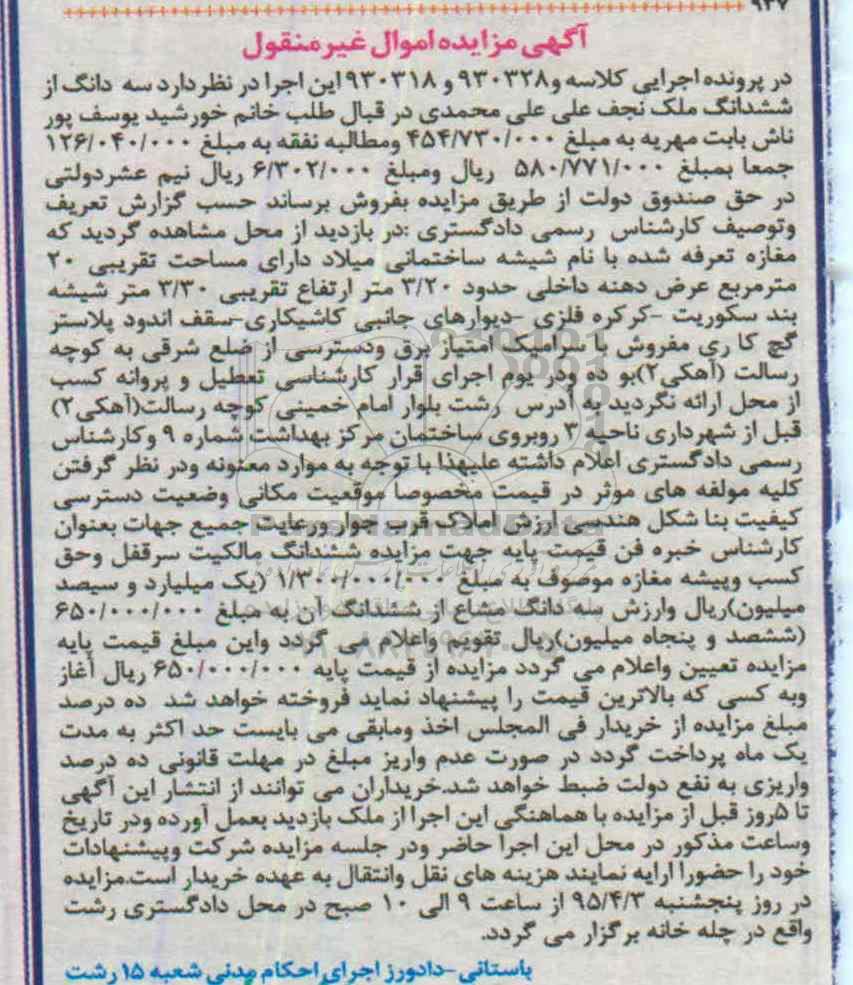 ۹۳۷
آگهی مزایده اموال غیر منقول
در پرونده اجرایی کلاسه و۹۳۰۳۲۸ و ۹۳۰۳۱۸ این اجرا در نظر دارد سه دانگ از
ششدانگ ملک نجف علی علی محمدی در قبال طلب خانم خورشید یوسف پور
ناش بابت مهریه به مبلغ ۴۵۴/۷۳۰/۰۰۰ ومطالبه نفقه به مبلغ ۱۲۶/۰۴۰/۰۰۰
جمعا بمبلغ ۵۸۰/۷۷۱/۰۰۰ ریال ومبلغ ۶/۳۰۲/۰۰۰ ریال نیم عشردولتی
در حق صندوق دولت از طریق مزایده بفروش برساند حسب گزارش تعریف
وتوصیف کارشناس رسمی دادگستری :در بازدید از محل مشاهده گردید که
مغازه تعرفه شده با نام شیشه ساختمانی میلاد دارای مساحت تقریبی ۲۰
مترمربع عرض دهنه داخلی حدود ۳/۲۰ متر ارتفاع تقریبی ۳/۳۰ متر شیشه
بند سکوریت -کرکره فلزی -دیوارهای جانبی کاشیکاری-سقف اندود پلاستر
گچ کا ری مفروش با سرامیک امتیاز برق ودسترسی از ضلع شرقی به کوچه
رسالت (آهکی۲)بو ده ودر یوم اجرای قرار کارشناسی تعطیل و پروانه کسب
از محل ارائه نگردید به آدرس رشت بلوار امام خمینی کوچه رسالت(آهکی۲)
قبل از شهرداری ناحیه ۳ روبروی ساختمان مرکز بهداشت شماره ۹ وکارشناس
رسمی دادگستری اعلام داشته علیهذا با توجه به موارد معنونه ودر نظر گرفتن
کلیه مولفه های موثر در قیمت مخصوصا موقعیت مکانی وضعیت دسترسی
کیفیت بنا شکل هندسی ارزش املاک قرب جوار ورعایت جمیع جهات بعنوان
کارشناس خبره فن قیمت پایه جهت مزایده ششدانگ مالکیت سرقفل وحق
کسب وپیشه مغازه موصوف به مبلغ ۱/۳۰۰/۰۰۰/۰۰۰ (یک میلیارد و سیصد
میلیون)ریال وارزش سه دانگ مشاع از ششدانگ آن به مبلغ ۶۵۰/۰۰۰/۰۰۰
(ششصد و پنجاه میلیون)ریال تقویم واعلام می گردد واین مبلغ قیمت پایه
مزایده تعیین واعلام می گردد مزایده از قیمت پایه ۶۵۰/۰۰۰/۰۰۰ ریال آغاز
وبه کسی که بالاترین قیمت را پیشنهاد نماید فروخته خواهد شد ده درصد
مبلغ مزایده از خریدار فی المجلس اخذ ومابقی می بایست حد اکثر به مدت
یک ماه پرداخت گردد در صورت عدم واریز مبلغ در مهلت قانونی ده درصد
واریزی به نفع دولت ضبط خواهد شد.خریداران می توانند از انتشار این آگهی
تا ۵روز قبل از مزایده با هماهنگی این اجرا از ملک بازدید بعمل آورده ودر تاریخ
وساعت مذکور در محل این اجرا حاضر ودر جلسه مزایده شرکت وپیشنهادات
خود را حضورا ارایه نمایند هزینه های نقل وانتقال به عهده خریدار است.مزایده
در روز پنجشنبه ۹۵/۴/۳ از ساعت ۹ الی ۱۰ صبح در محل دادگستری رشت
واقع در چله خانه برگزار می گردد.
باستانی -دادورز اجرای احکام مدنی شعبه ۱۵ رشت